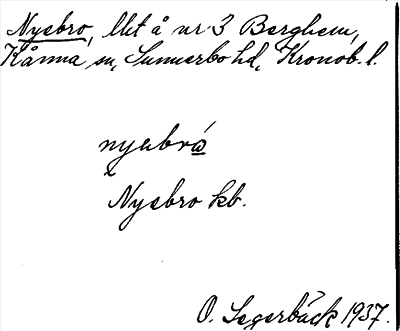 Nyebro, lht å nr 3 Berghem,
Kånna sn, Sunnerbo hd, Kronob. l.
nyabrò
x Nyebro kb.
O. Segerbäck 1937.